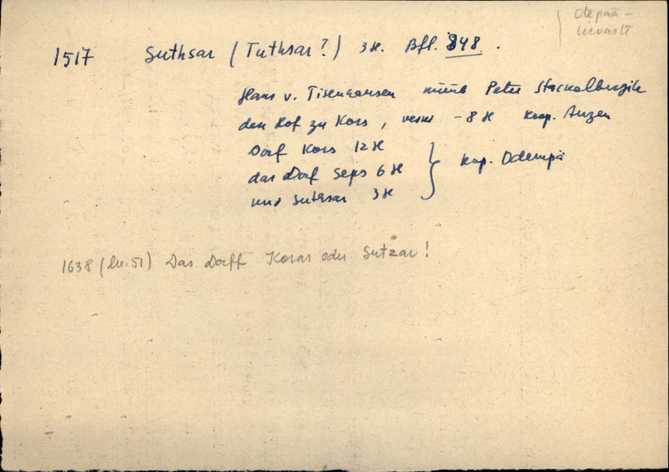 Otepää -
1517 Suthsar (Tuthsar?) 3 H. Bfl. 848.
Hans v. Tisenhausen Peter Stackelbergile
den Hof zu Kors, - 8 H Ksp. Anzen
Dorf Kors 12 H
das Dorf Seps 6 H } Ksp. Odempä
und Suthsar 3 H
1638 (lk. 51) Das Dorff Koras oder Sutzar!